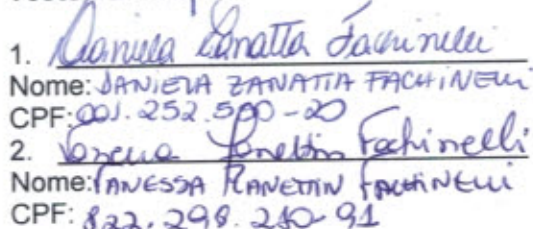 1. Daniela Zanatta Fachinelli
Nome: DANIELA ZANATTA FACHINELLI
CPF: 001.252.500-20
2. Vanessa Zanettin Fachinelli
Nome: VANESSA ZANETTIN FACHINELLI
CPF: 822.298.210-91